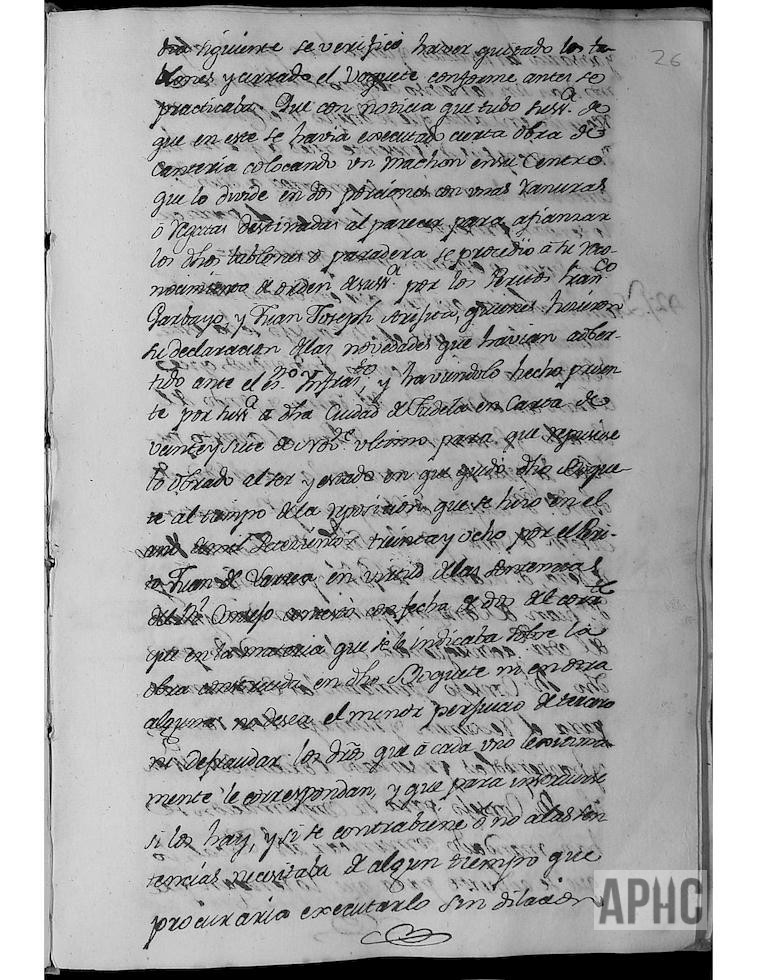 26
dia siguiente se verifico haver quitado los ta-
blones y cerrado el Boquete conforme antes se
practicaba. Que con noticia que tubo suss.ª de
que en este se havia executado cierta obra de
Canteria colocando un Machon en su Centro
que lo divide en dos porciones con unas ranuras
o regatas destinadas al parecer para afianzar
los dhos tablones o paradera se procedio a su reco-
nocimiento de orden de suss.ª por los Peritos Fran.co
Garbayo, y Juan Joseph, quienes hicieron
su declaracion de las novedades que havian adver-
tido ante el es.no Infras.to, y haviendolo hecho presen-
te por suss.ª a dha Ciudad de Tudela en Carta de
veinte y siete de Nob.e ultimo para que repusiese
lo obrado al ser y estado en que quedo dho Boque-
te al tiempo de la reposicion que se hizo en el
año de mil setecientos treinta y ocho por el Peri-
to Juan de Larrea en virtud de las sentencias
del R.l Consejo contestó con fecha de dos del corr.te
que en la materia que se le indicaba sobre la
obra construida en dho Boquete ni en otra
alguna no desea el menor perjuicio de tercero
ni defraudar los dros que a cada uno lexitima-
mente le correspondan, y que para
si los hay, y si se contrabiene o no a las sen-
tencias necesitaba de algun tiempo que
procuraria executarlo sin dilacion
APHC